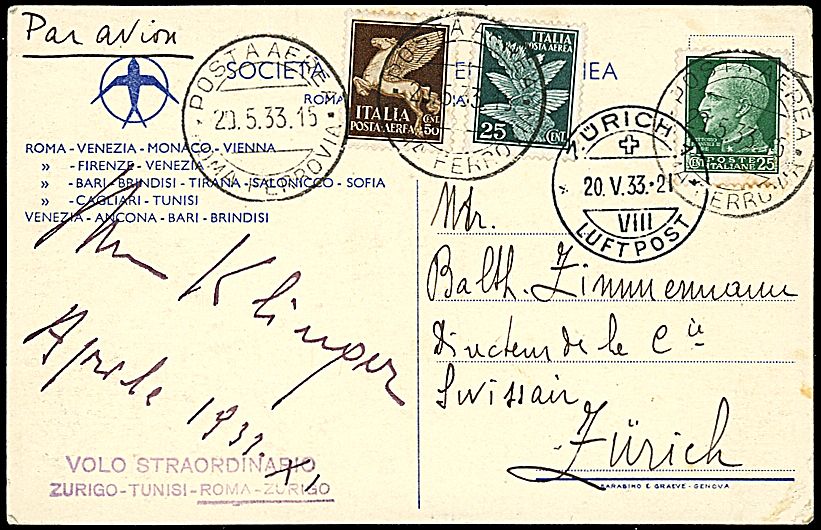 Par avion
SOCIETÀ
EA
ROMA
ROMA - VENEZIA - MONACO - VIENNA
» - FIRENZE - VENEZIA
» - BARI - BRINDISI - TIRANA - SALONICCO - SOFIA
» - CAGLIARI - TUNISI
VENEZIA - ANCONA - BARI - BRINDISI
POSTA AEREA
20.5.33.15
ROMA FERROVIA
ITALIA
POSTA-AEREA
50 CENT.
ITALIA
POSTA AEREA
25 CENT.
POSTE ITALIANE
CENT 25
POSTA AEREA
ZÜRICH
20.V.33-21
VIII
LUFTPOST
Mr.
Balth. Zimmermann
Directeur de la Cie
Swissair
Zürich
Klinger
Aprile 1933. XI
VOLO STRAORDINARIO
ZURIGO-TUNISI-ROMA-ZURIGO
BARABINO E GRAEVE - GENOVA